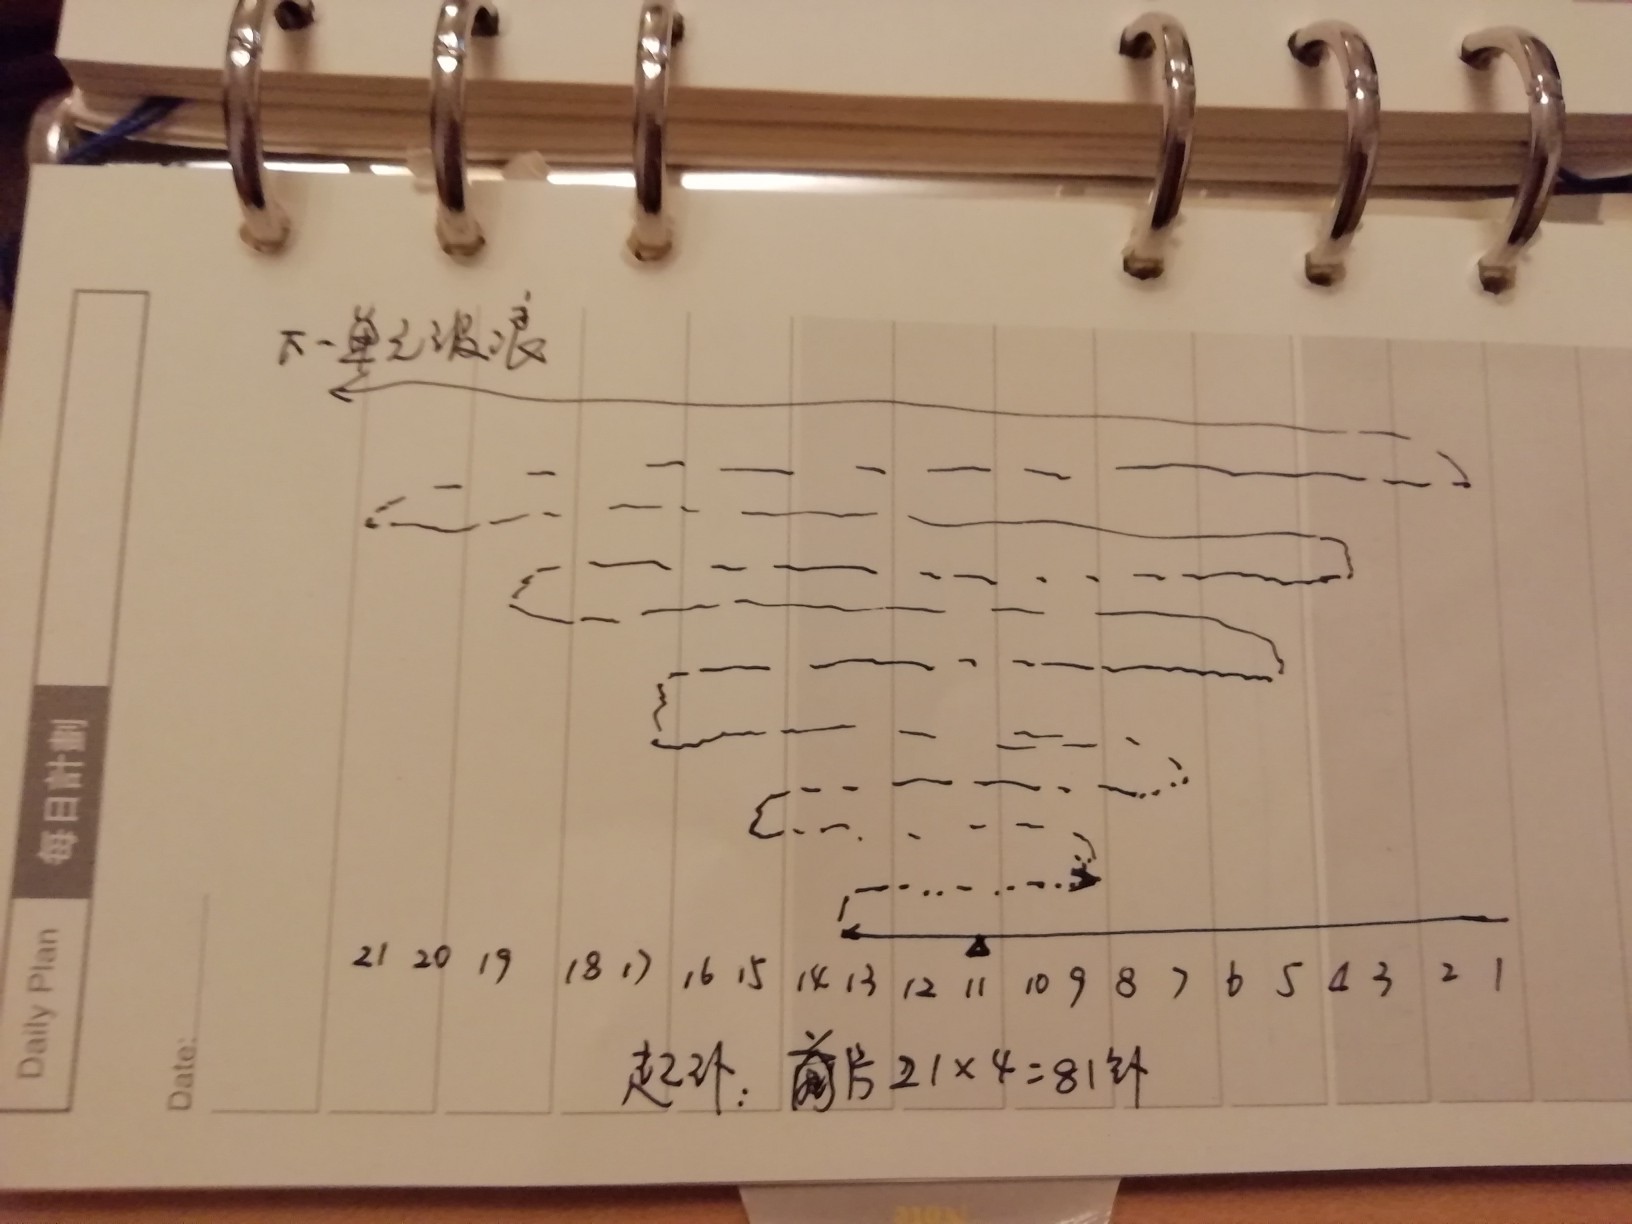 下一单元波浪
21 20 19 18 17 16 15 14 13 12 11 10 9 8 7 6 5 4 3 2 1
起针：前片21×4=81针
每日計劃
Daily Plan
Date: